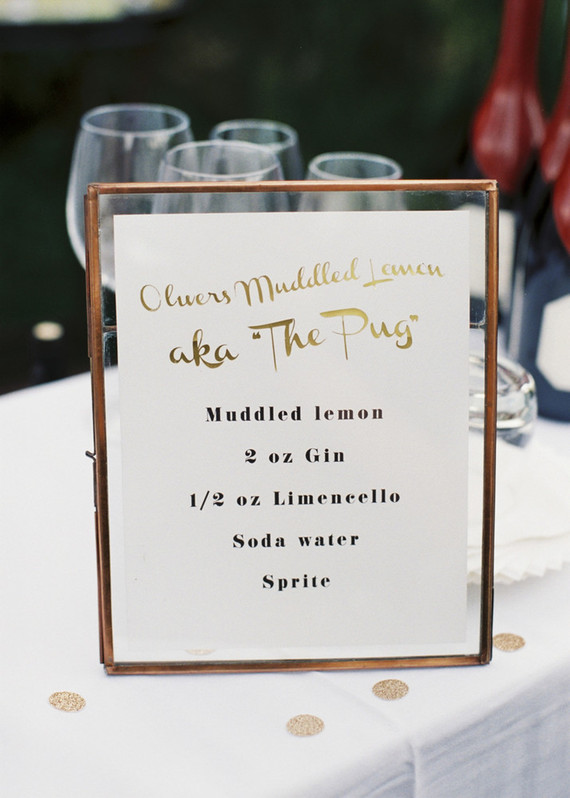 Olivers Muddled Lemon
aka "The Pug"
Muddled lemon
2 oz Gin
1/2 oz Limencello
Soda water
Sprite